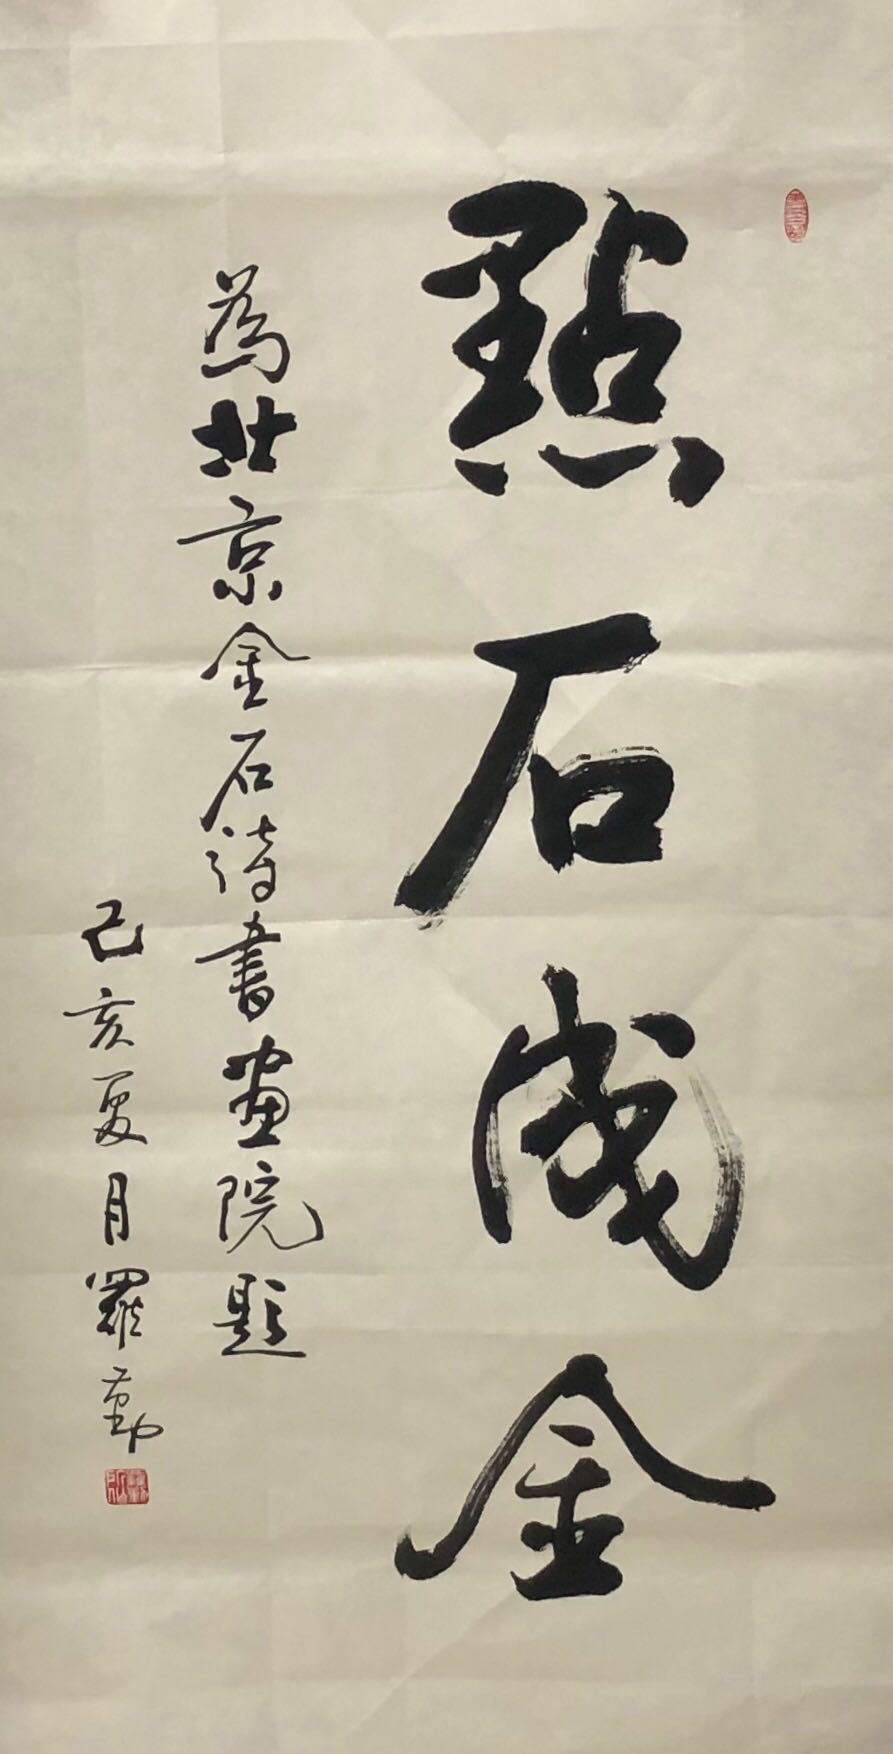 點石成金
為北京金石诗書畫院题
己亥夏月羅勤